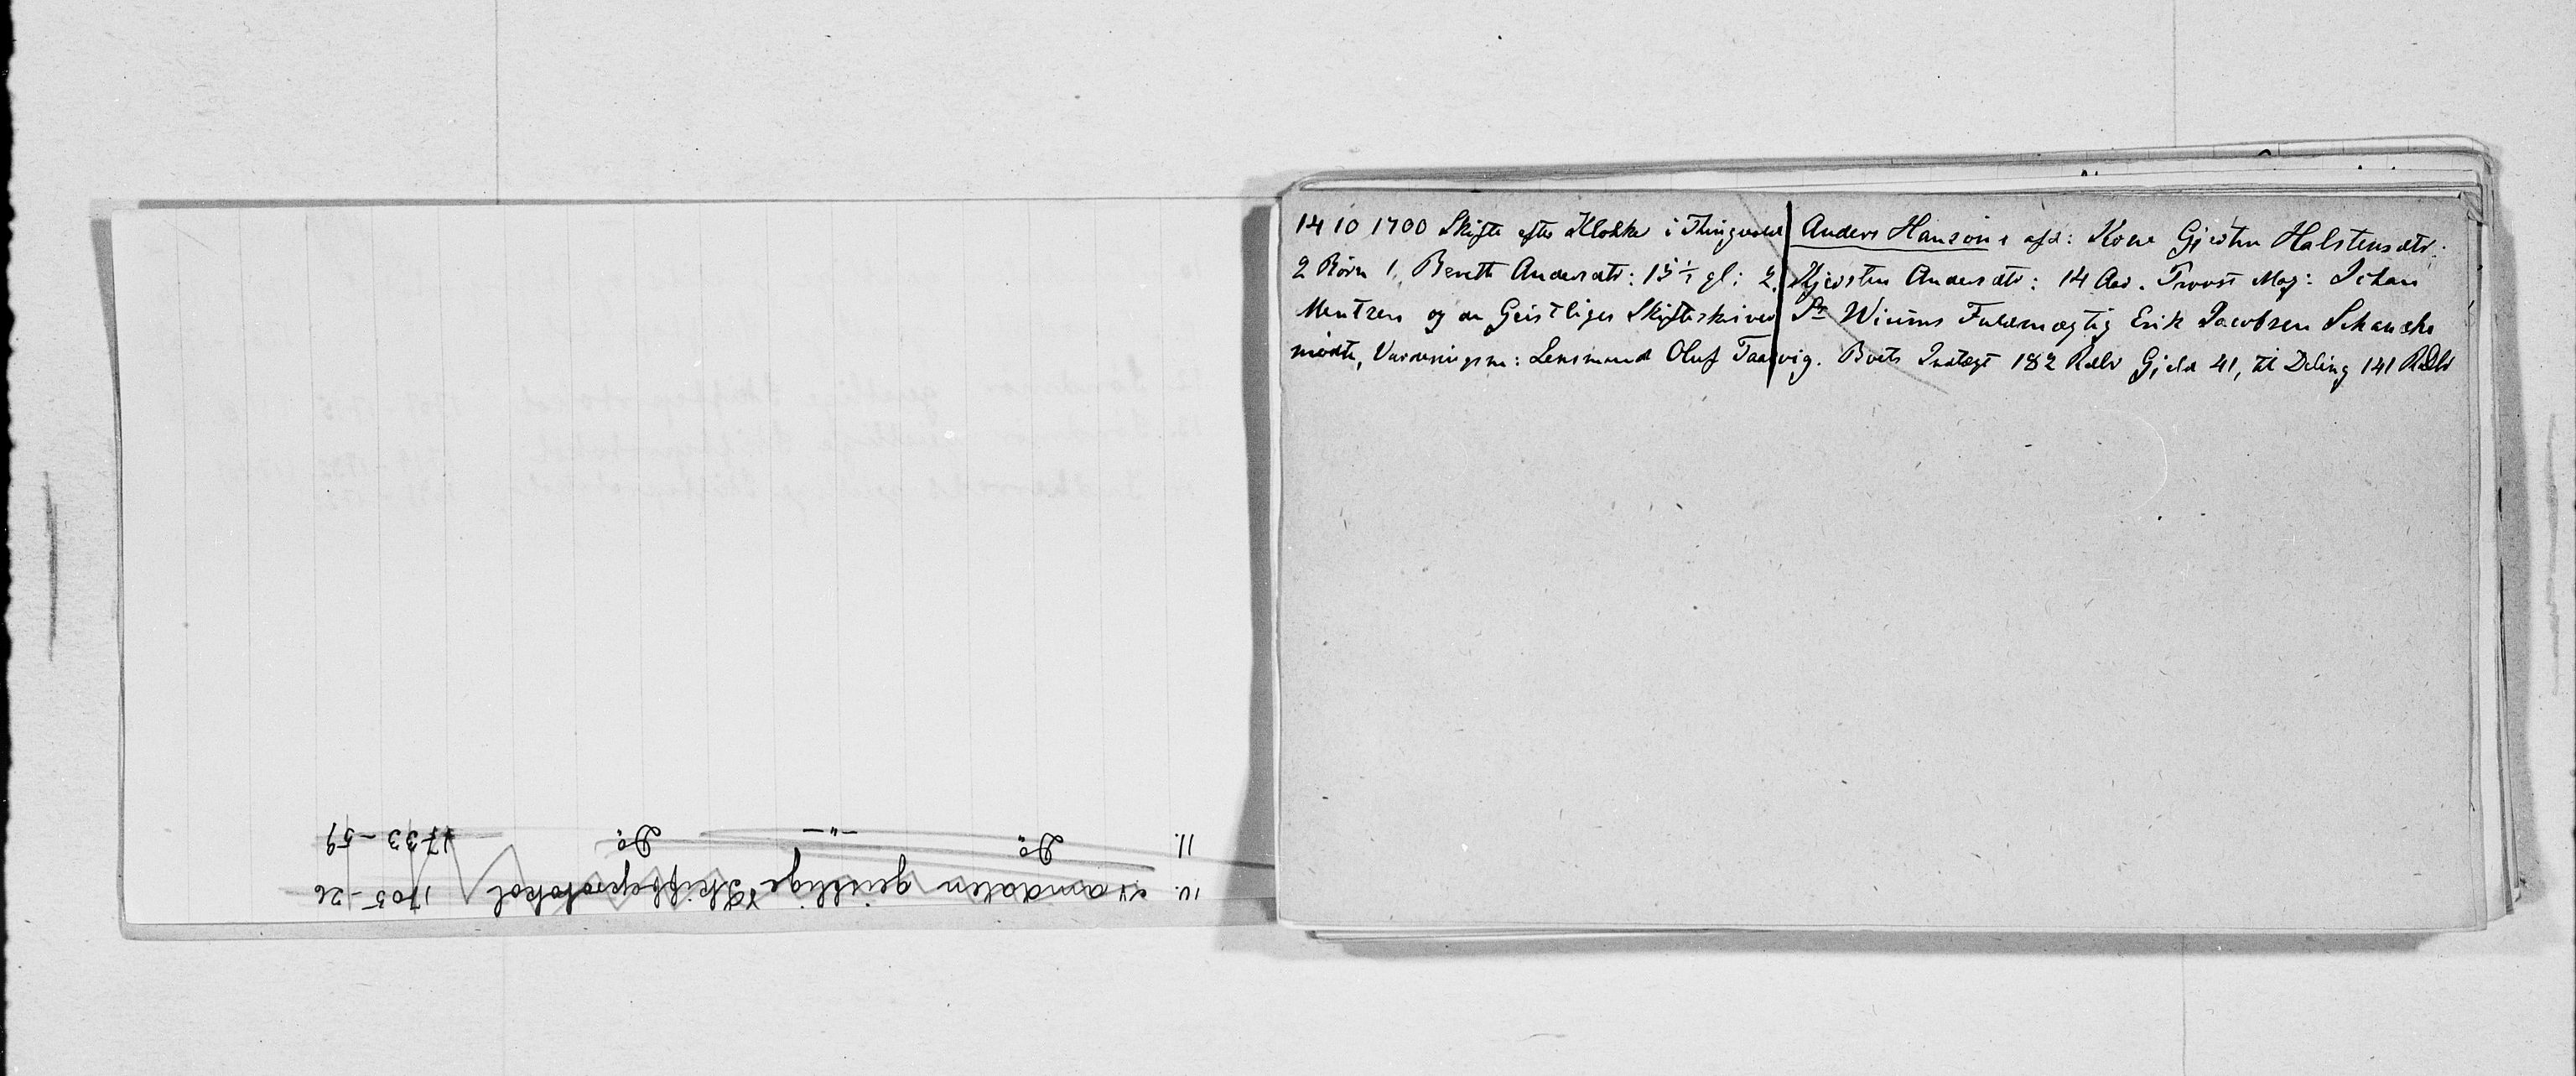 14 10 1700 Skifte efter Klokker i Thingvold Anders Hansøns afd: Kone Gjertru Halstensdtr.
2 Børn 1, Berethe Andersdtr: 15 1/2 gl: 2. Kjersten Andersdtr: 14 Aar. Provst Mag: Johan
Mentzen og den Geistliges Skifteskriver Sr Wiums Fuldmægtig Erik Jacobsen Schanche
mødte, Vurderingsm: Lensmand Oluf Taarvig. Boets Indtægt 182 Rdlr Gjeld 41, til Deling 141 Rdlr
10. Namdalen geistlige Skifteprotokol 1705-26
11. Do. -"- Do. 1733-59